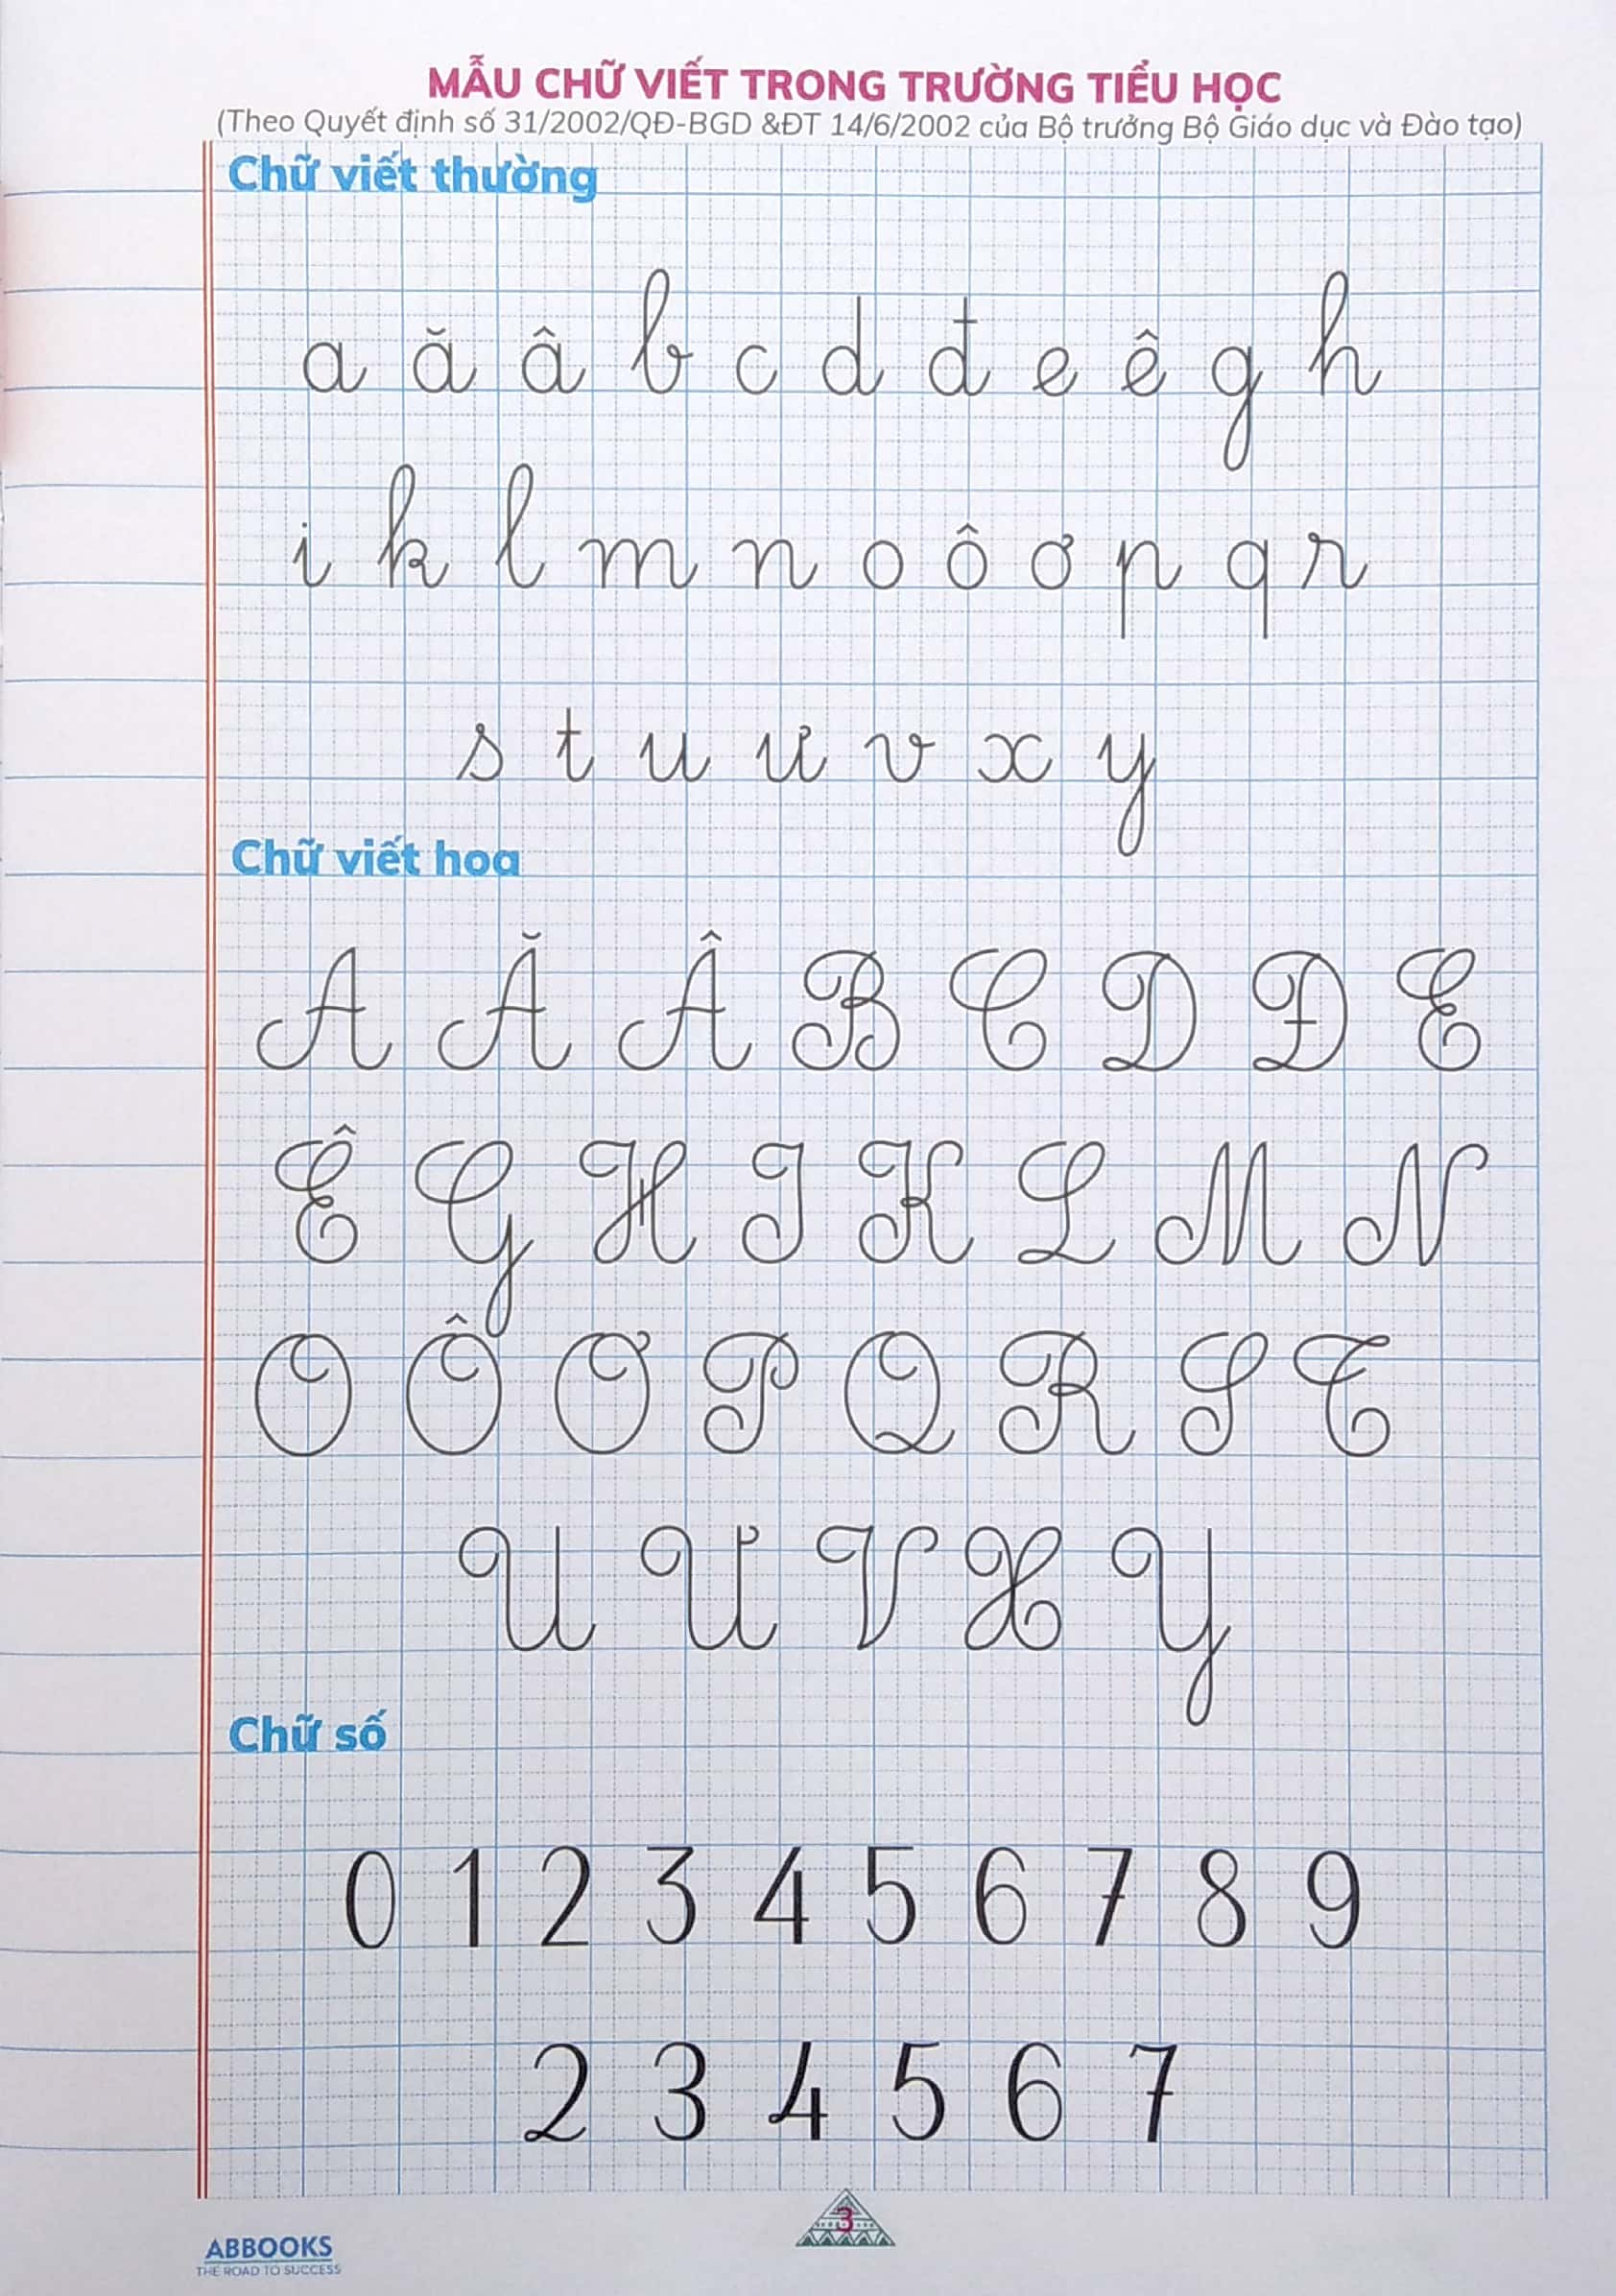 MẪU CHỮ VIẾT TRONG TRƯỜNG TIỂU HỌC
(Theo Quyết định số 31/2002/QĐ-BGD &ĐT 14/6/2002 của Bộ trưởng Bộ Giáo dục và Đào tạo)
Chữ viết thường
a ă â b c d đ e ê g h
i k l m n o ô ơ p q r
s t u ư v x y
Chữ viết hoa
A Ă Â B C D Đ E
Ê G H I K L M N
O Ô Ơ P Q R S T
U Ư V X Y
Chữ số
0 1 2 3 4 5 6 7 8 9
2 3 4 5 6 7
3
ABBOOKS
THE ROAD TO SUCCESS